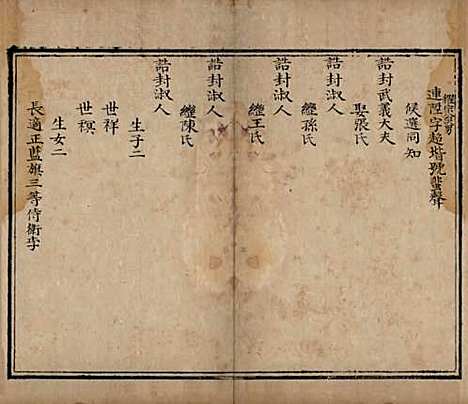 連陞字超堦號蜚聲
候選同知
誥封武義大夫
娶張氏
誥封淑人
繼孫氏
誥封淑人
繼王氏
誥封淑人
繼陳氏
誥封淑人
生子二
世祥
世禩
生女二
長適正藍旗三等侍衛李